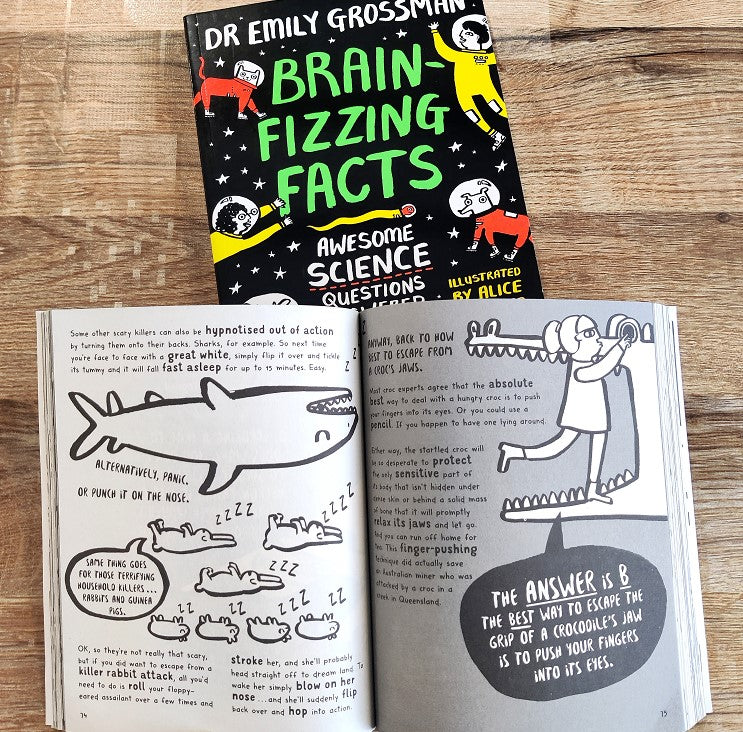 DR EMILY GROSSMAN
BRAIN-
FIZZING
FACTS
AWESOME
SCIENCE
QUESTIONS
ILLUSTRATED
BY ALICE
Some other scary killers can also be hypnotised out of action
by turning them onto their backs. Sharks, for example. So next time
you're face to face with a great white, simply flip it over and tickle
its tummy and it will fall fast asleep for up to 15 minutes. Easy.
Z
Z
Z
ALTERNATIVELY, PANIC.
OR PUNCH IT ON THE NOSE.
ZZZZ
ZZZZ
ZZZ
SAME THING GOES
FOR THOSE TERRIFYING
HOUSEHOLD KILLERS...
RABBITS AND GUINEA
PIGS.
ZZ ZZ ZZ ZZ
OK, so they're not really that scary,
but if you did want to escape from a
killer rabbit attack, all you'd
need to do is roll your floppy-
eared assailant over a few times and
stroke her, and she'll probably
head straight off to dream land. To
wake her simply blow on her
nose ...and she'll suddenly flip
back over and hop into action.
74
ANYWAY, BACK TO HOW
BEST TO ESCAPE FROM
A CROC'S JAWS.
Most croc experts agree that the absolute
best way to deal with a hungry croc is to push
your fingers into its eyes. Or you could use a
pencil. If you happen to have one lying around.
Either way, the startled croc will
be so desperate to protect
the only sensitive part of
its body that isn't hidden under
dense skin or behind a solid mass
of bone that it will promptly
relax its jaws and let go.
And you can run off home for
tea. This finger-pushing
technique did actually save
an Australian miner who was
attacked by a croc in a
creek in Queensland.
THE ANSWER IS B
THE BEST WAY TO ESCAPE THE
GRIP OF A CROCODILE'S JAW
IS TO PUSH YOUR FINGERS
INTO ITS EYES.
75